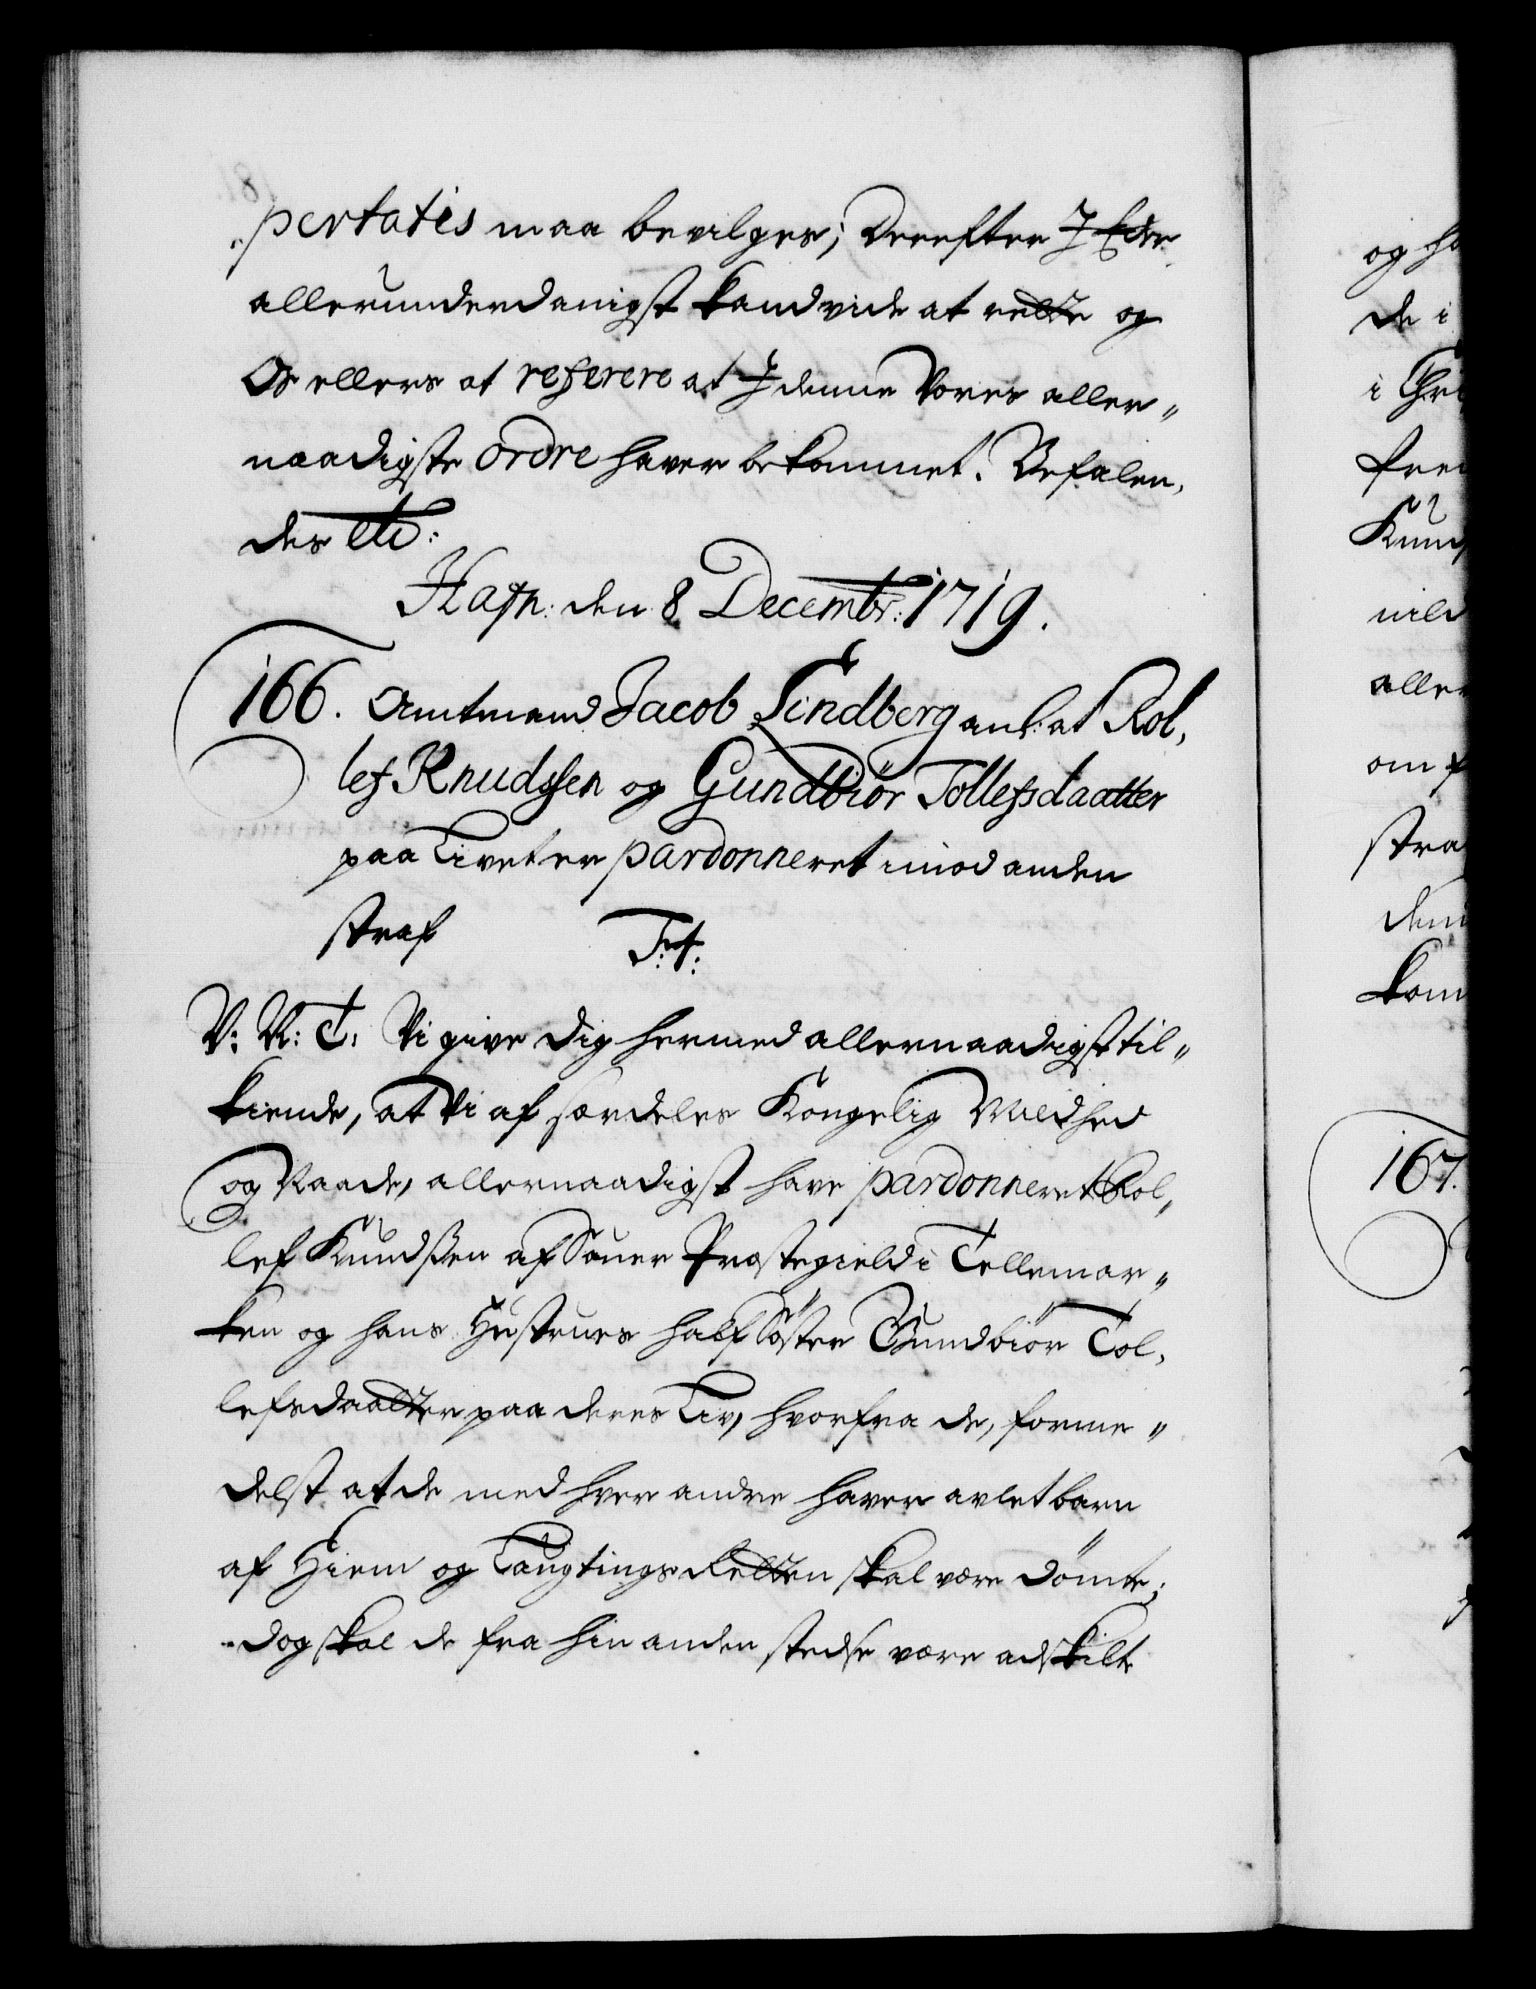 „pertatis maa bevilges; Derefter I Eder
allerunderdanigst kand vide at rette og
Os ellers at referere at I denne Vores aller„
naadigste Ordre haver bekommet. Befalen,
des etc:
Hafn: den 8 Decembr: 1719.
166. Amtmand Jacob Lindberg anl: at Rol,
lef Knudssen og Gundbiör Tollefsdaatter
paa Livet er pardonneret imod anden
straf T:t:
V: N: T: Vi give dig hermed allernaadigst til„
kiende, at Vi af særdeles Kongelig Mildhed
og Naade, allernaadigst have pardonneret Rol„
lef Knudssen af Souer Præstegield i Tellemar„
ken og hans Hustrues half Söster Gundbiör Tol,
lefsdaatter paa deres Liv, hvorfra de, forme„
delst at de med hver andre haver avlet barn
af Hiem og Laugtings Retten skal være dömte;
dog skal de fra hin anden stedse være adskilte
og
de i
i
aller
om
stra
kom
167.